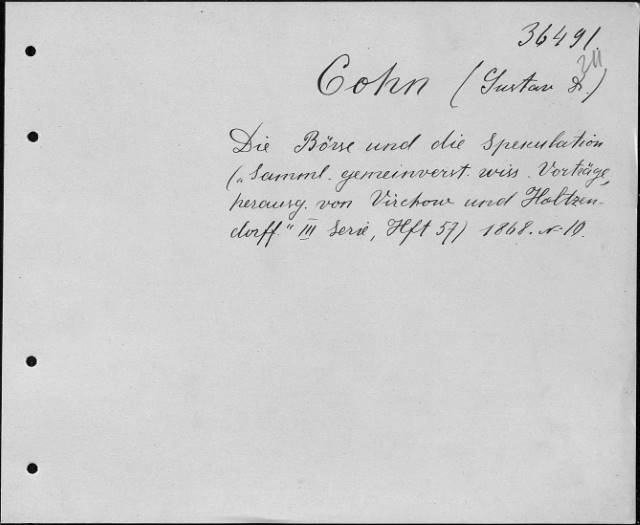 36491
211
Cohn (Gustav Dr.)
Die Börse und die Spekulation
(„Samml. gemeinverst. wiss. Vorträge,
herausg. von Virchow und Holtzen-
dorff" III Serie, Hft 57) 1868. N-10.